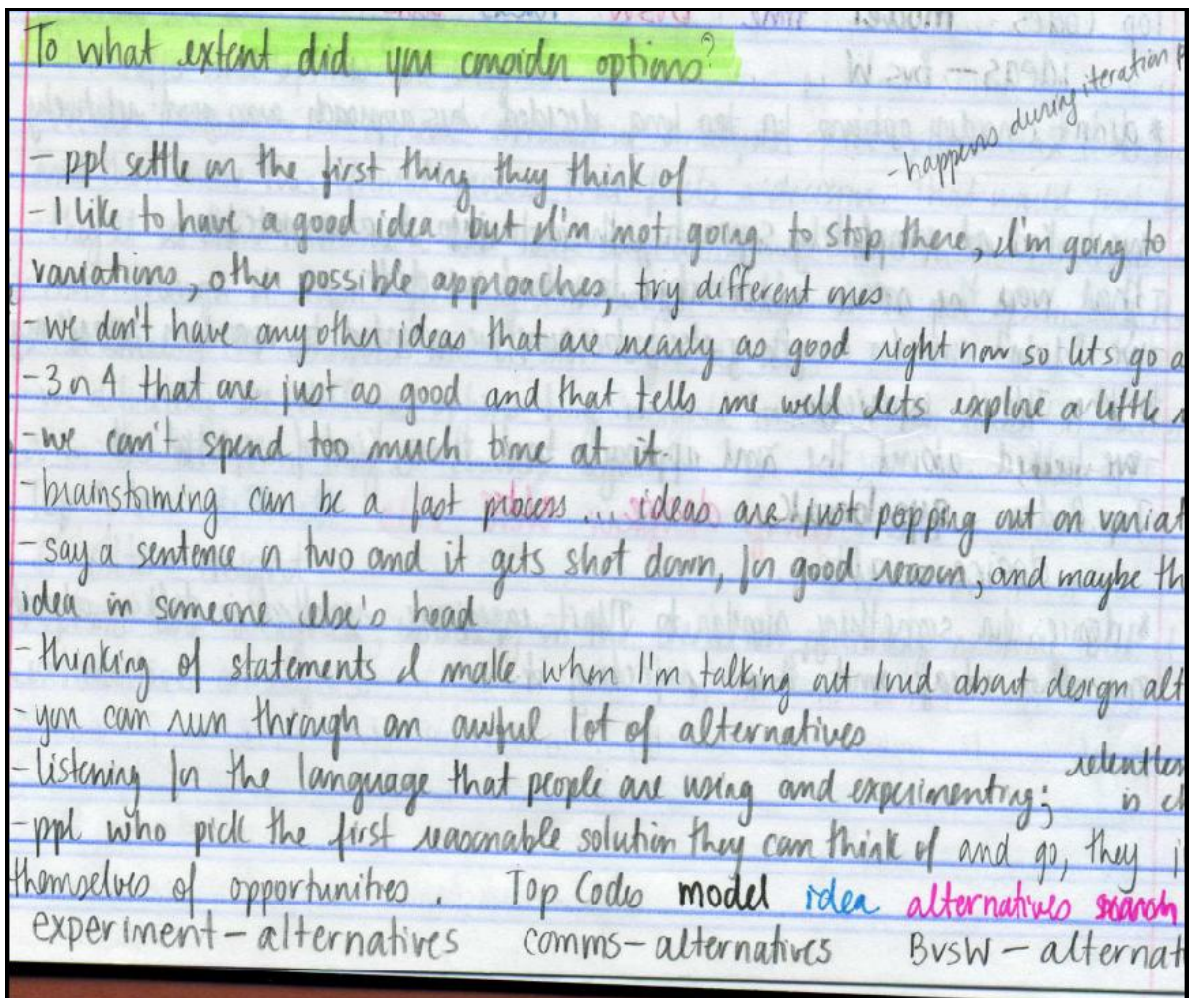 To what extent did you consider options?
- happens during iteration
- ppl settle on the first thing they think of
- I like to have a good idea but I'm not going to stop there, I'm going to
variations, other possible approaches, try different ones
- we don't have any other ideas that are nearly as good right now so lets go a
- 3 or 4 that are just as good and that tells me well lets explore a little
- we can't spend too much time at it.
- brainstorming can be a fast process... ideas are just popping out on variat
- say a sentence or two and it gets shot down, for good reason, and maybe th
idea in someone else's head
- thinking of statements I make when I'm talking out loud about design alt
- you can run through an awful lot of alternatives
relentles
- listening for the language that people are using and experimenting; is c
- ppl who pick the first reasonable solution they can think of and go, they
themselves of opportunities. Top Codes model idea alternatives search
experiment - alternatives comms - alternatives BvsW - alternat